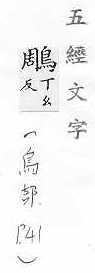 五經文字
鵰丁幺反
(鳥部 P41)